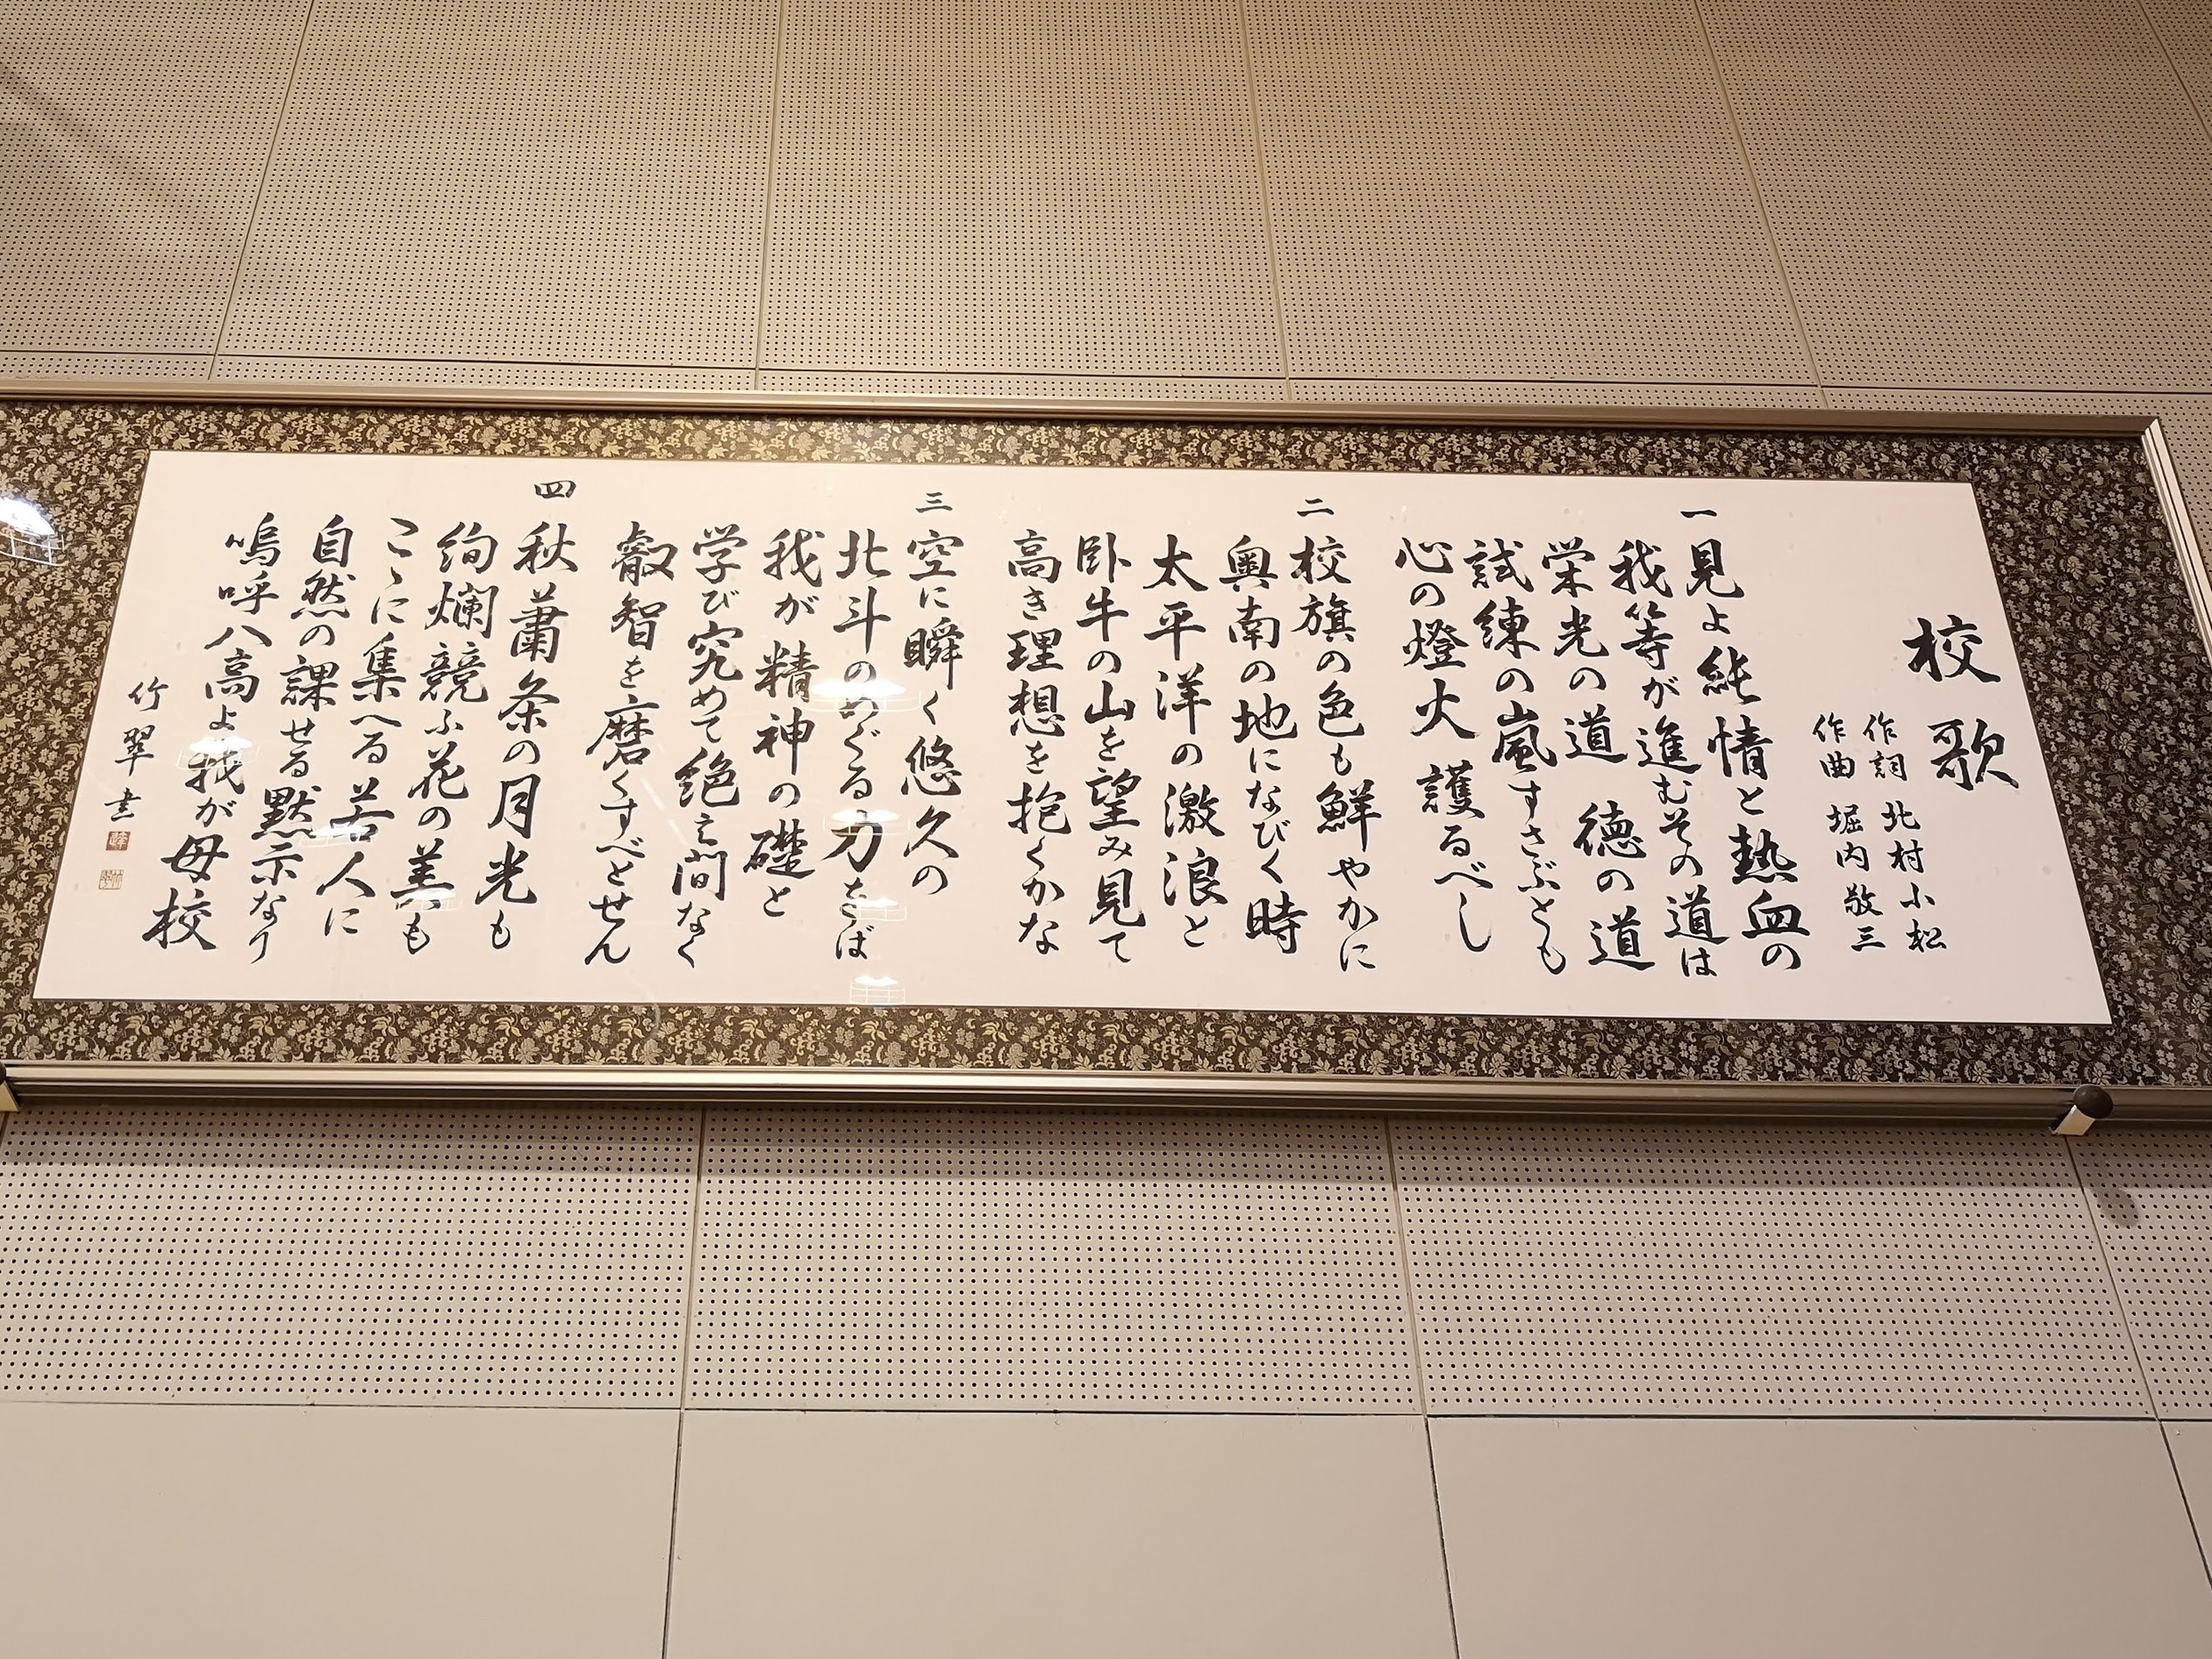 校歌
作詞 北村小松
作曲 堀内敬三
一 見よ純情と熱血の
我等が進むその道は
栄光の道 徳の道
試練の嵐すさぶとも
心の燈火 護るべし
二 校旗の色も鮮やかに
奥南の地になびく時
太平洋の激浪と
臥牛の山を望み見て
高き理想を抱くかな
三 空に瞬く悠久の
北斗のめぐる力をば
我が精神の礎と
学び究めて絶え間なく
叡智を磨くすべとせん
四 秋蕭条の月光も
絢爛競ふ花の美も
こゝに集へる若人に
自然の課せる黙示なり
嗚呼八高よ我が母校
竹翠書